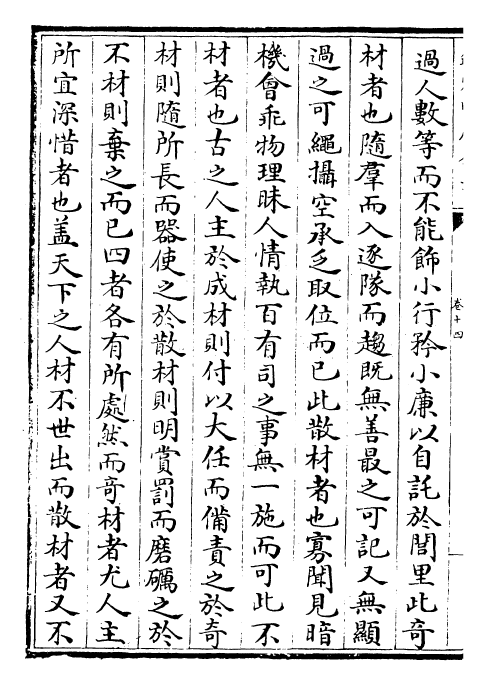 卷十四
過人數等而不能飾小行矜小廉以自託於閭里此奇
材者也隨羣而入逐隊而趨既無善最之可記又無顯
過之可繩攝空承乏取位而已此散材者也寡聞見暗
機會乖物理昧人情執百有司之事無一施而可此不
材者也古之人主於成材則付以大任而備責之於奇
材則隨所長而器使之於散材則明賞罰而磨礪之於
不材則棄之而已四者各有所處然而奇材者尤人主
所宜深惜者也盖天下之人材不世出而散材者又不